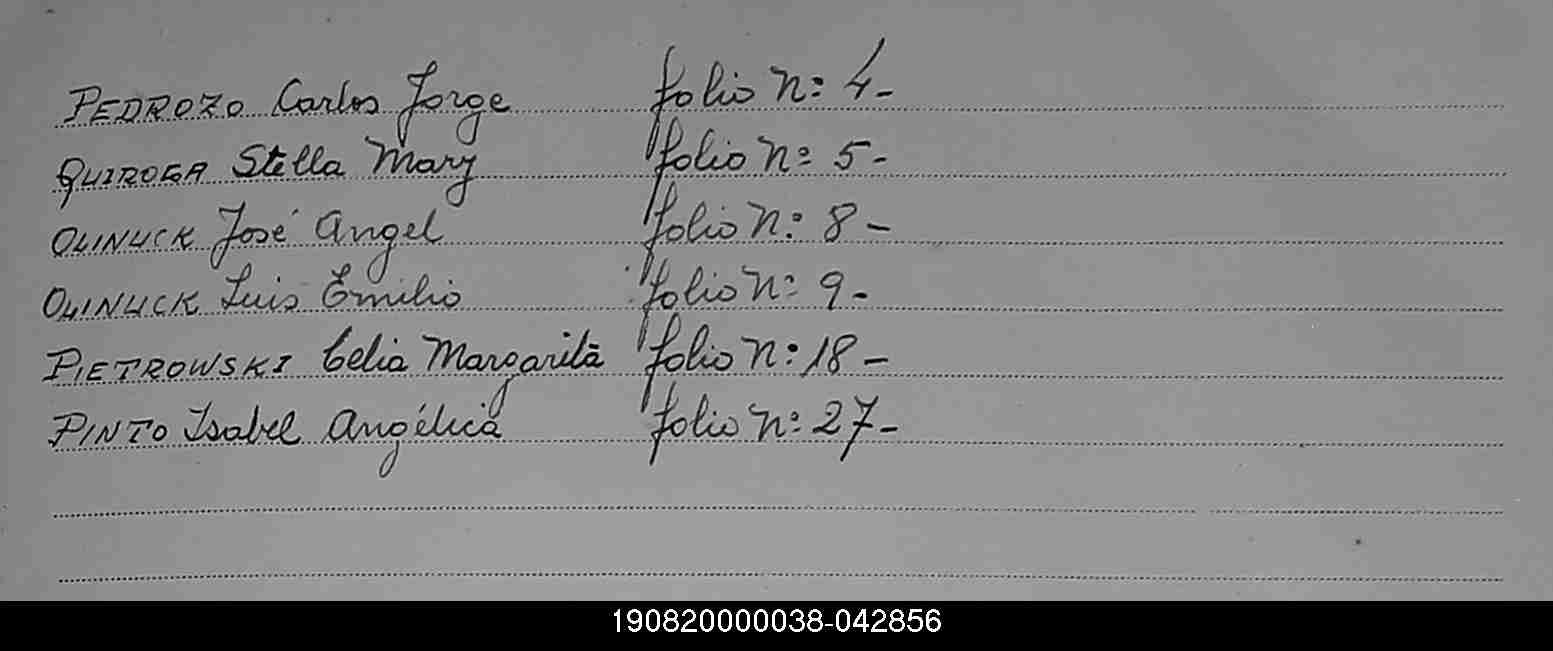 PEDROZO Carlos Jorge folio Nº 4-
QUIROGA Stella Mary folio Nº 5-
OLINUCK José Angel folio Nº 8-
OLINUCK Luis Emilio folio Nº 9-
PIETROWSKI Celia Margarita folio Nº 18-
PINTO Isabel Angélica folio Nº 27-
190820000038-042856